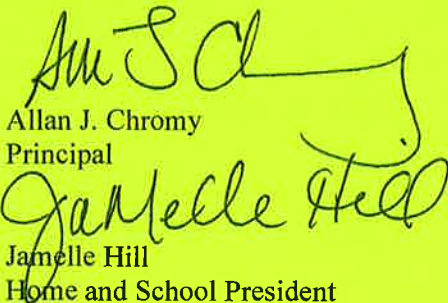 Allan J. Chromy
Principal
JaMelle Hill
Jamelle Hill
Home and School President